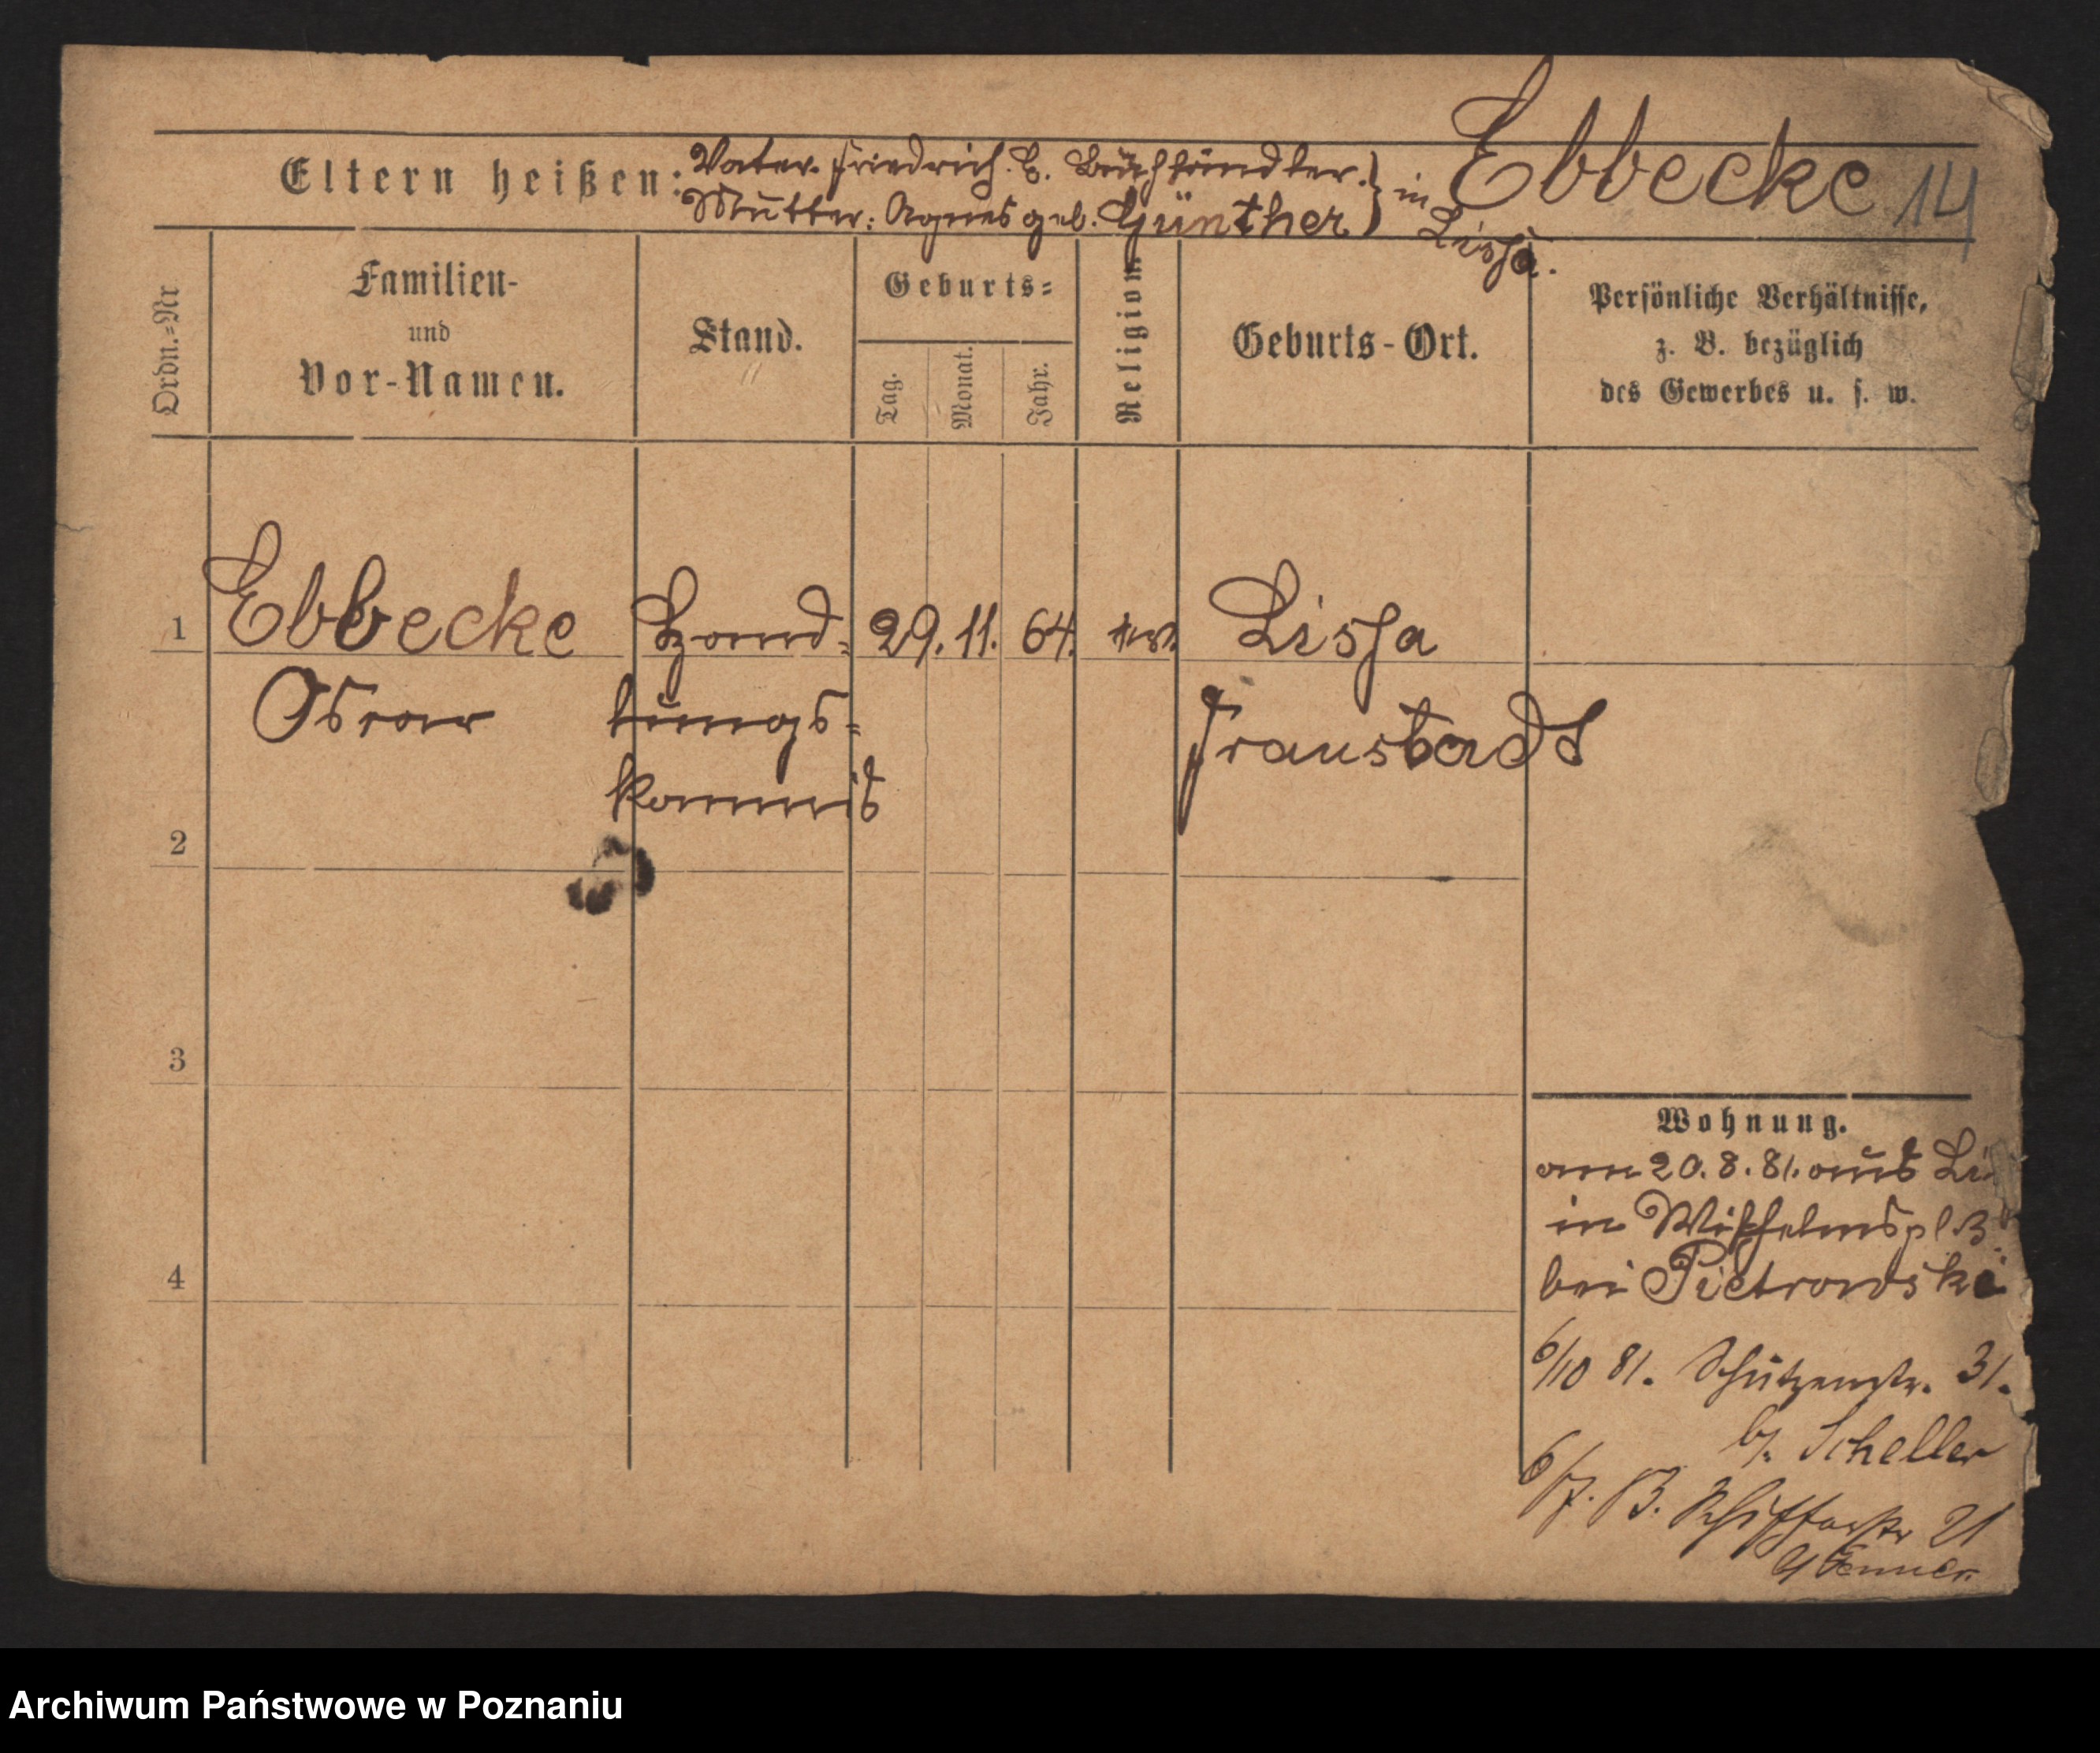 Ebbecke 14
Eltern heißen: Vater. Friedrich. E. Buchhändler. } in
Mutter: Agnes geb. Günther } Lissa.
Ordn.=Nr
Familien-
und
Vor-Namen.
Stand.
Geburts=
Tag.
Monat.
Jahr.
Religion.
Geburts-Ort.
Persönliche Verhältnisse,
z. B. bezüglich
des Gewerbes u. s. w.
1 Ebbecke Hand= 29. 11. 64. ev. Lissa
Oscar lungs= Fraustadt
kommis
2
3
4
Wohnung.
am 20. 8. 81. aus
in Wilhelmspl. 3
bei Pietrowski
6/10 81. Schützenstr. 31.
b/. Scheller
6/7. 83. Schifferstr 21
Archiwum Państwowe w Poznaniu